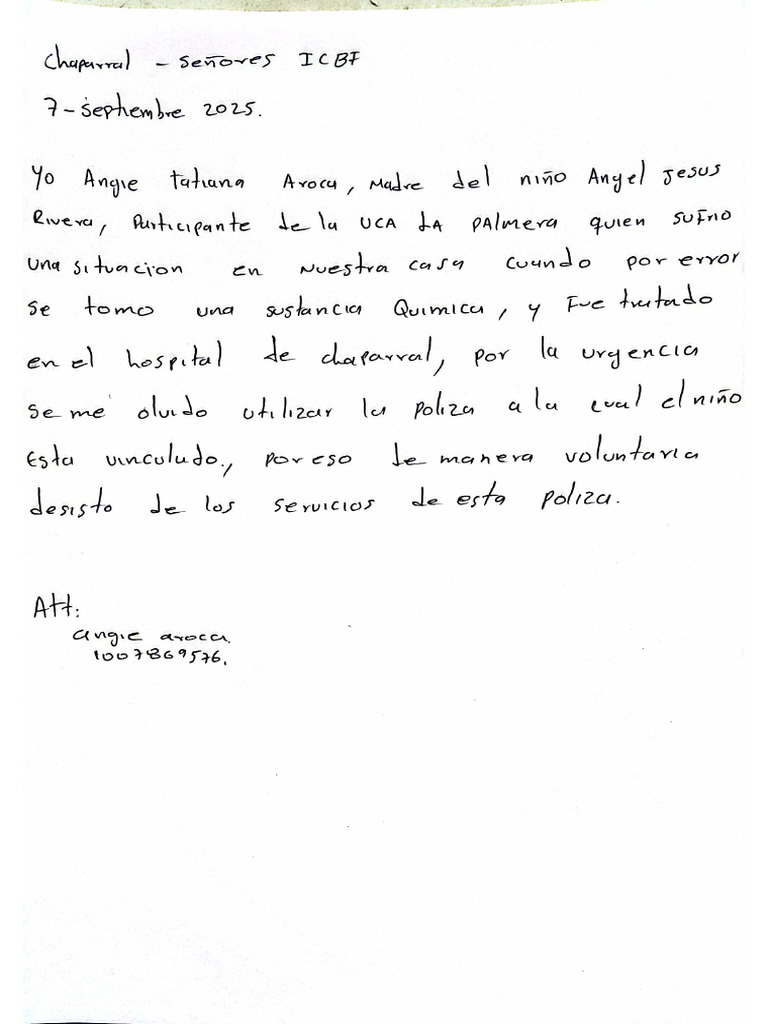 Chaparral - Señores ICBF
7-septiembre 2025.
Yo Angie Tatiana Aroca, Madre del niño Angel Jesus
Rivera, Participante de la UCA LA PALMERA quien sufrio
una situacion en nuestra casa cuando por error
se tomo una sustancia Quimica, y Fue tratado
en el hospital de chaparral, por la urgencia
se me olvido utilizar la poliza a la cual el niño
Esta vinculado., por eso de manera voluntaria
desisto de los servicios de esta poliza.
Att:
angie aroca.
1007869576.